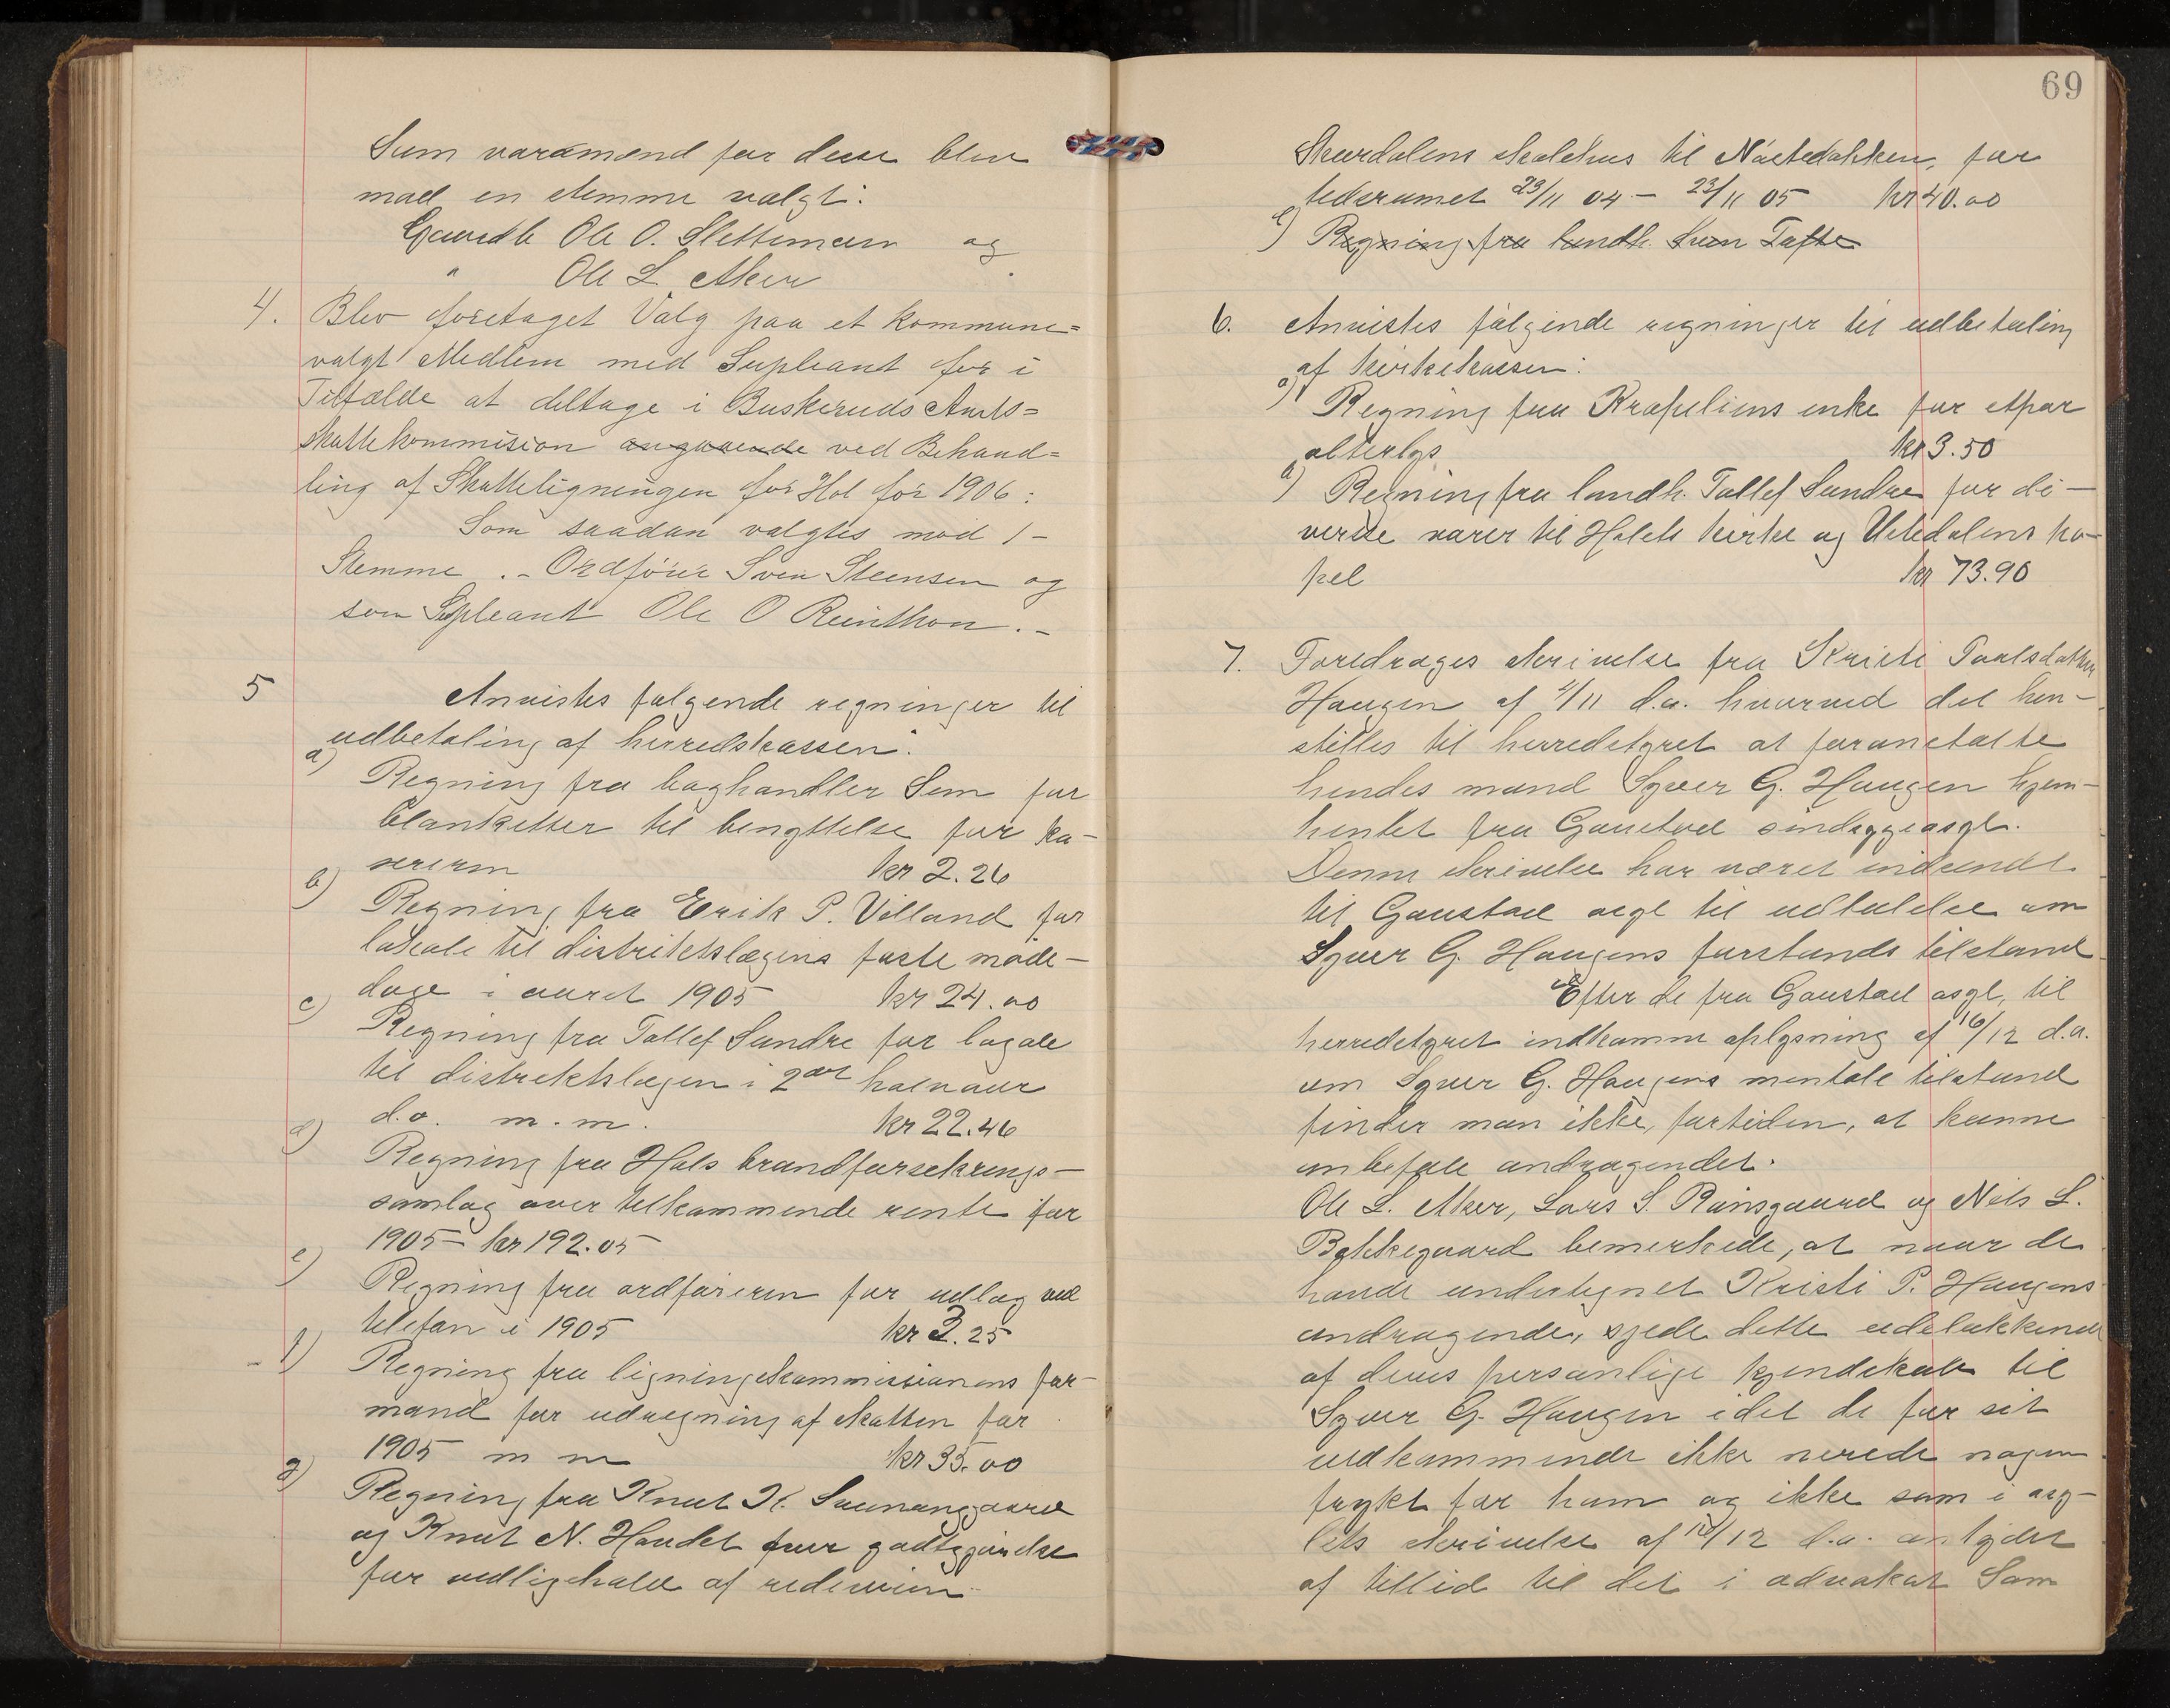 Som varamænd for disse blev
mod en stemme valgt:
Gaardb Ole O. Slettemoen og
" Ole L. Aker
4. Blev foretaget Valg paa et kommune=
valgt Medlem med Supleant for i
Tilfælde at deltage i Buskeruds Amts=
skattekommision angaaende ved Behand=
ling af Skatteligningen for Hol for 1906:
Som saadan valgtes mod 1 -
Stemme .- Ordfører Sven Steensen og
som Supleant Ole O Reinthon.-
5 Anvistes følgende regninger til
udbetaling af herredskassen:
a) Regning fra boghandler Sem for
blanketter til benyttelse for ka-
sereren kr 2.26
b) Regning fra Erik P. Villand for
lokale til distriktslægens faste møde-
dage i aaret 1905 kr 24.00
c) Regning fra Tollef Sundre for logale
til distriktslægen i 2det halvaar
d.a. m.m. kr 22.46
d) Regning fra Hols brandforsekrings-
samlag over tilkommende rente for
1905 - kr 192.05
e) Regning fra ordføreren for udlæg ved
telefon i 1905 kr 3.25
f) Regning fra ligningskommissionens for-
mand for udregning af skatten for
1905 m m kr 35.00
g) Regning fra Knut K.
og Knut N. for godtgjørelse
for vedligehold af
69
Skurdalens skolehus til for
tidsrumet 23/11 04 - 23/11 05 kr 40.00
Regning fra landh. Tufte
6. Anvistes følgende regninger til udbetaling
af kirkekassen:
a) Regning fra Kropeliens enke for etpar
alterlys kr 3.50
b) Regning fra landh. Tollef Sundre for di-
verse varer til Hols kirke og Ustedalens ka-
pel kr 73.90
7. Foredrages skrivelse fra Kristi Paalsdatter
Haugen af 4/11 d.a. hvorved det hen-
stilles til herredstyret at foranstalte
hendes mand Syver G. Haugen hjem-
hentet fra Gaustad sindsygeasyl.
Denne skrivelse har været indsendt
til Gaustad asyl til udtalelse om
Syver G. Haugens forstands tilstand
Efter de fra Gaustad asyl, til
herredstyret indkomne oplysning af 16/12 d.a.
om Syver G. Haugens mentale tilstand
finder man ikke, fortiden, at kunne
anbefale andragendet.
Ole L. Aker, Lars S. Rønsgaard og Nils L.
Bakkegaard bemerkede, at naar de
havde undertegnet Kristi P. Haugens
andragende, sjede dette udelukkende
af deres personlige kjendskab til
Syver G. Haugen idet de for sit
vedkommende ikke nerede nogen
frykt for ham og ikke som i asy-
lets skrivelse af 16/12 d.a. antydet
af tillid til det i advokat Sam